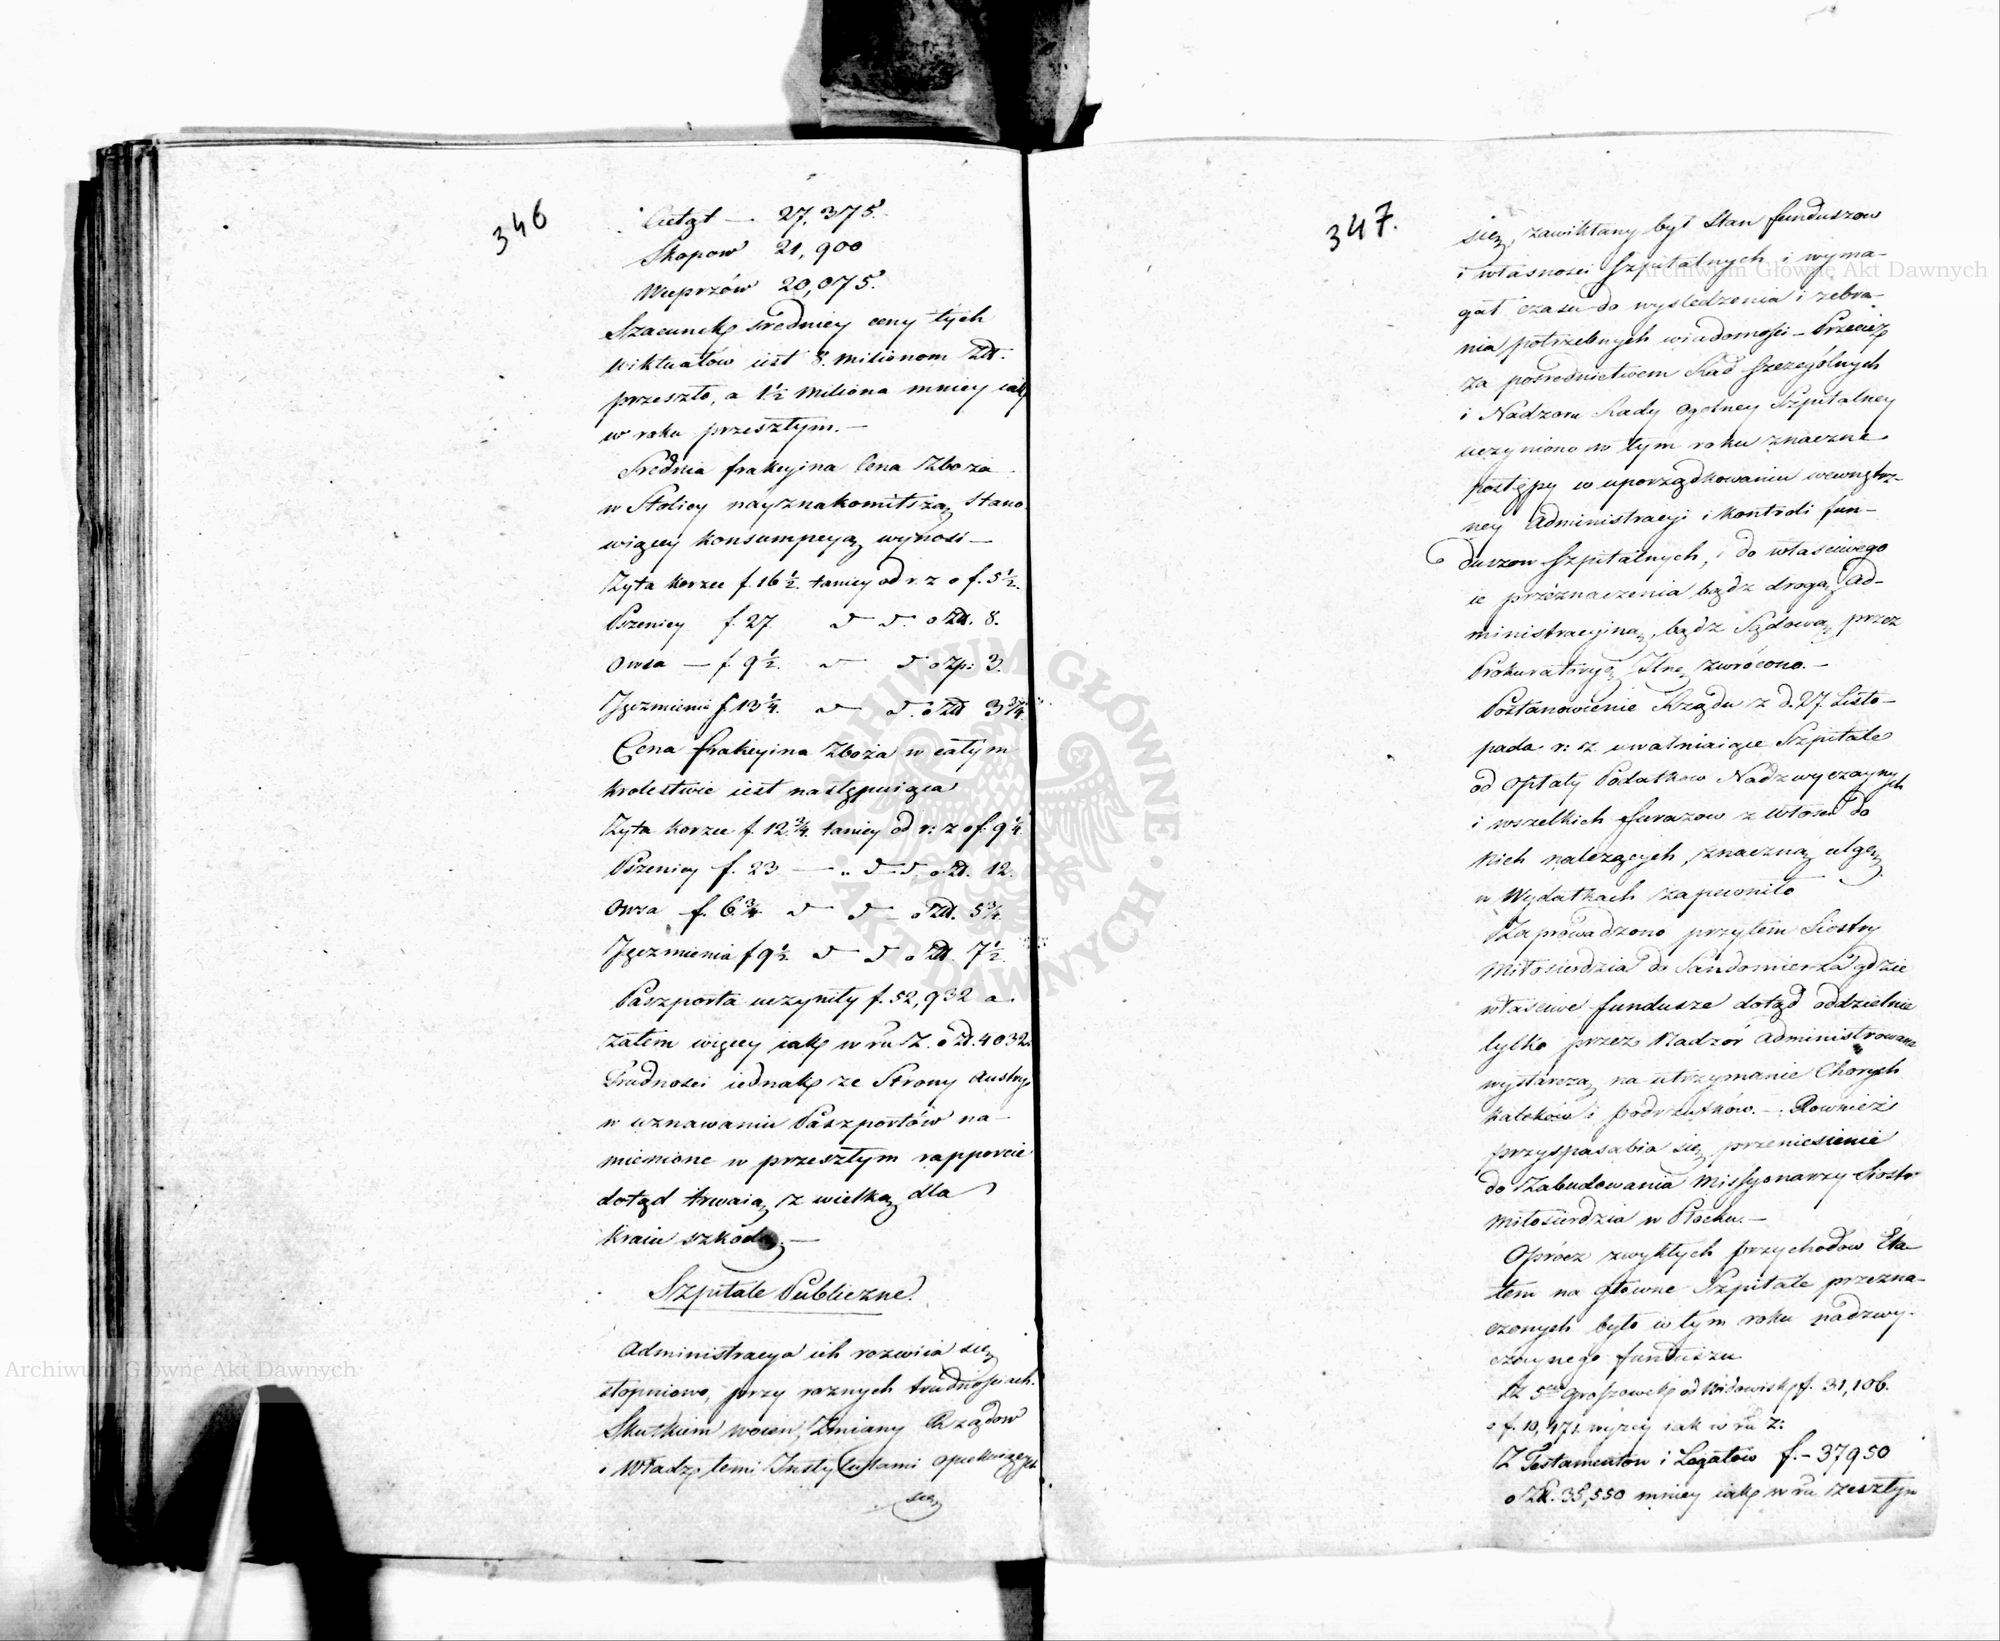 346
Cieląt — 27,375.
Skopow 21,900
Wieprzów 20,075.
Szacunek sredniey ceny tych
wiktuałow iest 8. milionom Złł.
przeszło, a 1½ miliona mniey iak
w roku przeszłym. —
Srednia frakcyina Cena Zboża
w Stolicy nayznakomitszą stano-
wiącey konsumpcyą wynosi —
Zyta korzec f. 16½. taniey od r. z o f. 5½.
Pszenicy f. 27 d — d. o Złł. 8.
Owsa — f. 9½. d — d o Zp: 3.
Jęczmienia f. 13¼. d — d. o Złł 3¾
Cena frakcyina Zboża w całym
krolestwie iest następuiąca
Zyta korzec f. 12.¾. taniey od r: z o f. 9¼
Pszenicy f. 23 — „ d — d o Zł. 12.
Owsa f. 6¾ d — d — o Złł. 5¾
Jęczmienia f 9½ d — d o Złł 7½
Paszporta uczyniły f. 52,932 a
zatem więcey iak w ru Z. o Zł. 4032.
Trudności iednak ze Strony Austryi
w uznawaniu Paszportów na-
mienione w przeszłym rapporcie
dotąd trwaią z wielką dla
Kraiu szkodą. —
Szpitale Publiczne.
Administracya ich rozwiia się
stopniowo, przy roznych trudnościach.
Skutkiem woien, Zmiany Rządow
i Władz temi Instytutami opiekuiących
się
347.
się, zawikłany był Stan funduszow
i własnosci Szpitalnych i wyma-
gał czasu do wysledzenia i zebra-
nia potrzebnych wiadomości — Przecież
za posrednictwem Rad Szczególnych
i Nadzoru Rady Ogolney Szpitalney
uczyniono w tym roku znaczne
postępy w uporządkowaniu wewnętrz-
ney Administracyi i kontroli fun-
duszow Szpitalnych, i do własciwego
ic przéznaczenia bądz drogą Ad-
ministracyiną, bądz Sądową przez
Prokuratoryą Jlną zwrócono. —
Postanowienie Rządu z d. 27. Listo-
pada r: z uwalniaiące Szpitale
od Opłaty Podatkow Nadzwyczaynych
i wszelkich furazow z Włosci do
nich należących, znaczną ulgę
w Wydatkach zapewniło
Zaprowadzono przytem Siostry
Miłosierdzia do Sandomierza gdzie
własciwe fundusze dotąd oddzielnie
tylko przez Nadzór Administrowane
wystarczą na utrzymanie Chorych
kalekow i podrzutków. — Rownież
przyspasabia się przeniesienie
do Zabudowania Missyonarzy Siostr
Miłosierdzia w Płocku. —
Oprócz zwykłych przychodow Eta-
tem na główne Szpitale przezna-
czonych było w tym roku nadzwy-
czaynego funduszu
Z 5cio Groszowek od Widowisk f. 31,106.
o f. 10,471. wyzey iak w ru Z:
Z Testamentow i Legatów f. — 37950
o Złł. 35,550 mniey iak w ru zeszłym